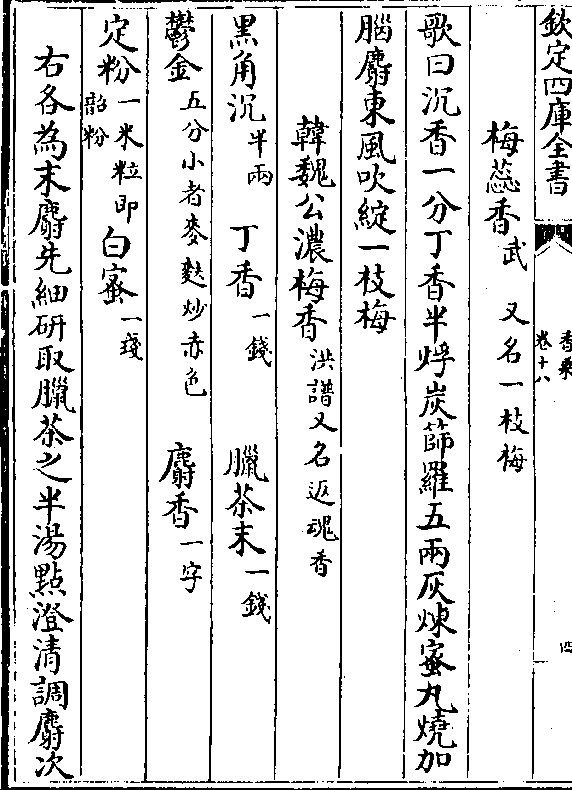 欽定四庫全書
香乘
卷十八
四
梅蕊香武 又名一枝梅
歌曰沉香一分丁香半烰炭篩羅五兩灰煉蜜丸燒加
腦麝東風吹綻一枝梅
韓魏公濃梅香洪譜又名返魂香
黒角沉半兩 丁香一錢 臘茶末一錢
鬱金五分小者麥麩炒赤色 麝香一字
定粉一米粒即韶粉 白蜜一琖
右各為末麝先細研取臘茶之半湯點澄清調麝次